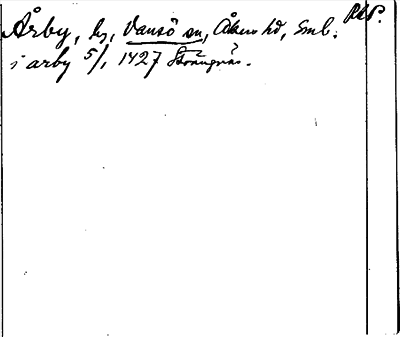 PRP.
Årby, by, Vansö sn, Åkers hd, Sml.
i arby 5/1 1427 Strängnäs.